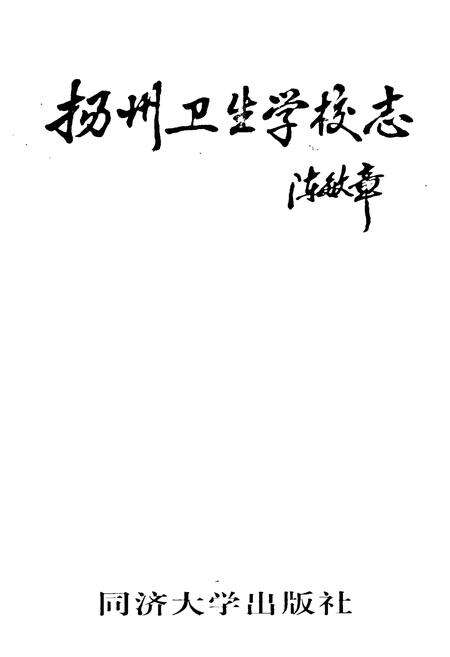 扬州卫生学校志
陈敏章
同济大学出版社